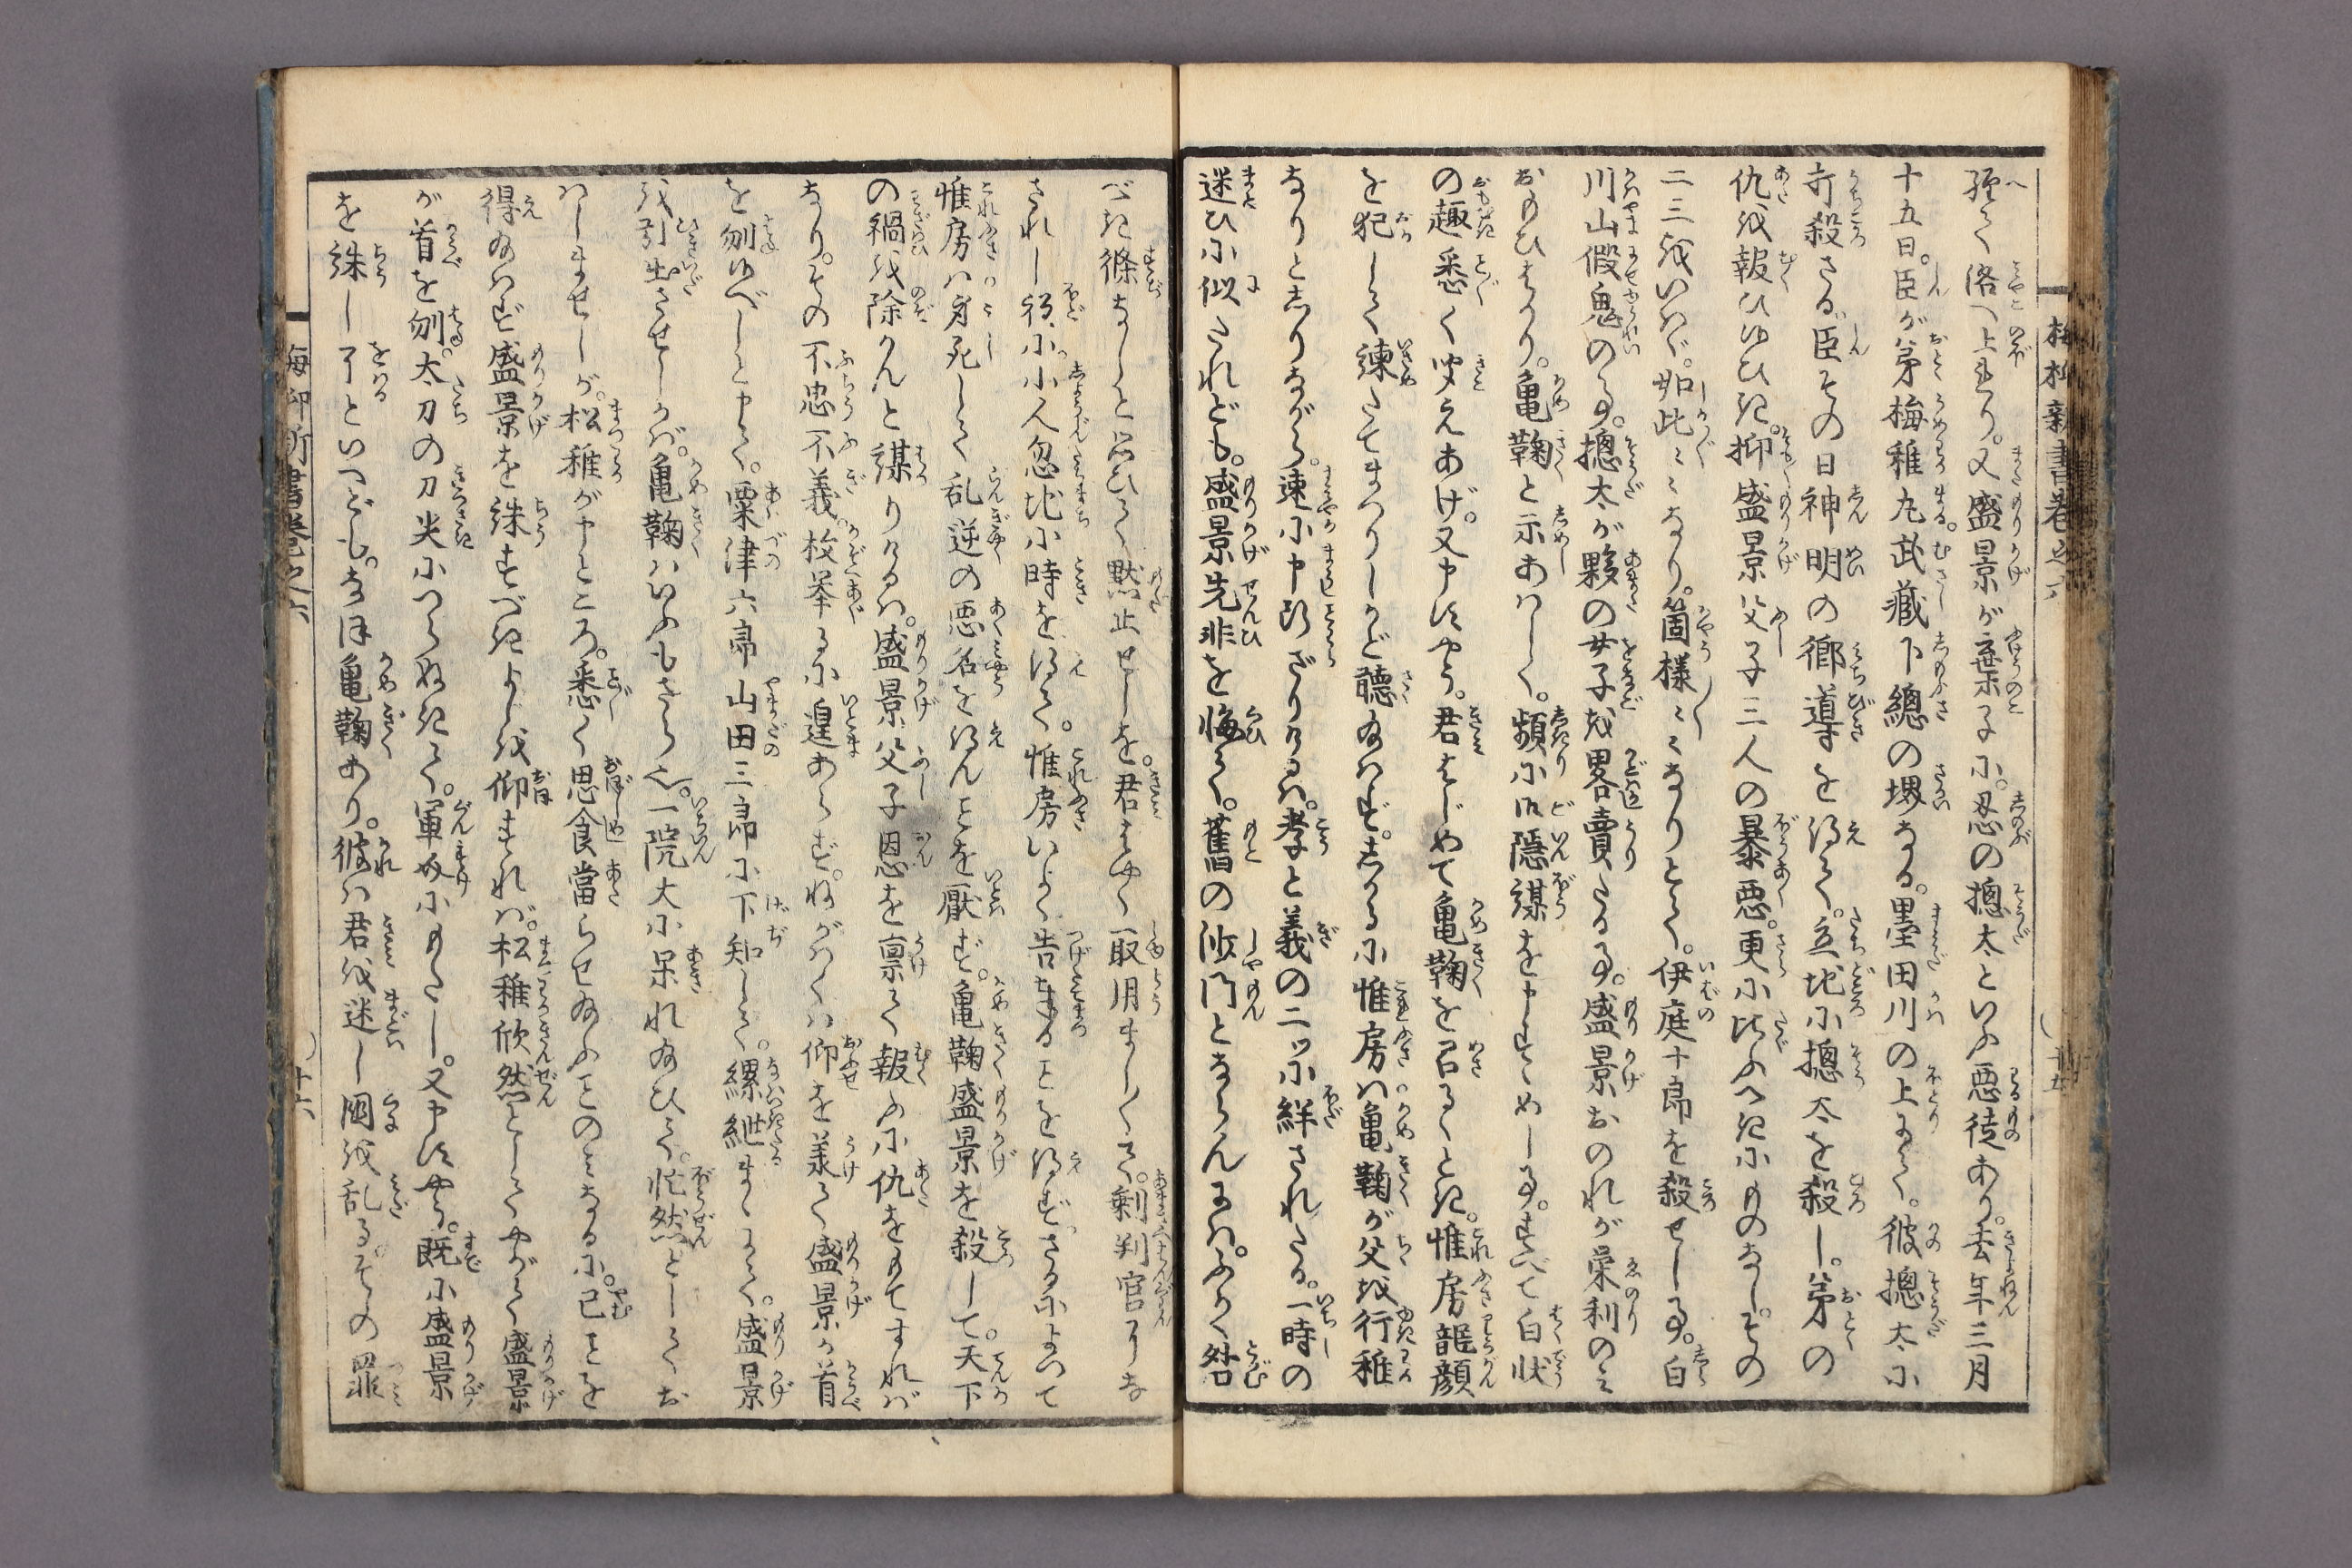 経て洛へ上れり。又盛景が棄子に。忍の摠太といふ悪徒あり。去年三月
十五日。臣が弟梅稚丸武蔵下總の堺なる。墨田川の上にて。彼摠太に
打殺さる。臣その日神明の郷導を得て。立地に摠太を殺し。弟の
仇を報ひ候ひき。抑盛景父子三人の暴悪。更に比ふべきにものなし。その
二三をいはゞ。如此々々なり。箇様々々なりとて。伊庭十郎を殺せし事。白
川山假鬼の事。摠太が夥の女子を畧賣たる事。盛景おのれが栄利のみ
おもひはかり。亀鞠と示あはして。頻に御隠謀を申すゝめし事。すべて白状
の趣悉く聞えあげ。又申すやう。君はじめて亀鞠を召るゝとき。惟房龍顔
を犯して諫たてまつりしかど聴給はず。しかるに惟房は亀鞠が父を行稚
なりとしりながら。速に申訴ざりけるは。孝と義の二ッに絆されたる。一時の
迷ひに似たれども。盛景先非を悔て。舊の沙門とならんには。ふかく咎
べき條なしと思ひて黙止せしを。君はやく取用ましまして。剰判官にな
されし程に。小人忽地に時を得て。惟房いよゝ告奉ることを得ず。さるによつて
惟房は身死して乱逆の悪名を得んことを厭ず。亀鞠盛景を殺して。天下
の禍を除かんと謀りけるは。盛景父子恩を禀て報ふに仇をもてすれば
なり。その不忠不義。枚挙るに遑あらず。ねがはくは仰を羕て盛景が首
を刎候べしと申て。粟津六郎山田三郎に下知して。縲紲まゝにて。盛景
を引出させしかば。亀鞠はいふもさら也。一院大に呆れ給ひて。忙然としてお
はしませしが。松稚が申ところ。悉く思食當らせ給ふことのみなるに。已ことを
得給はず盛景を誅すべきよしを仰すれば。松稚欣然としてやがて盛景
が首を刎。太刀の刀尖につらぬきて。軍奴にもたし。又申すやう。既に盛景
を誅し了といへども。なほ亀鞠あり。彼は君を迷し國を乱る。その罪
梅柳新書巻之六
十五
梅柳新書巻之六
十六